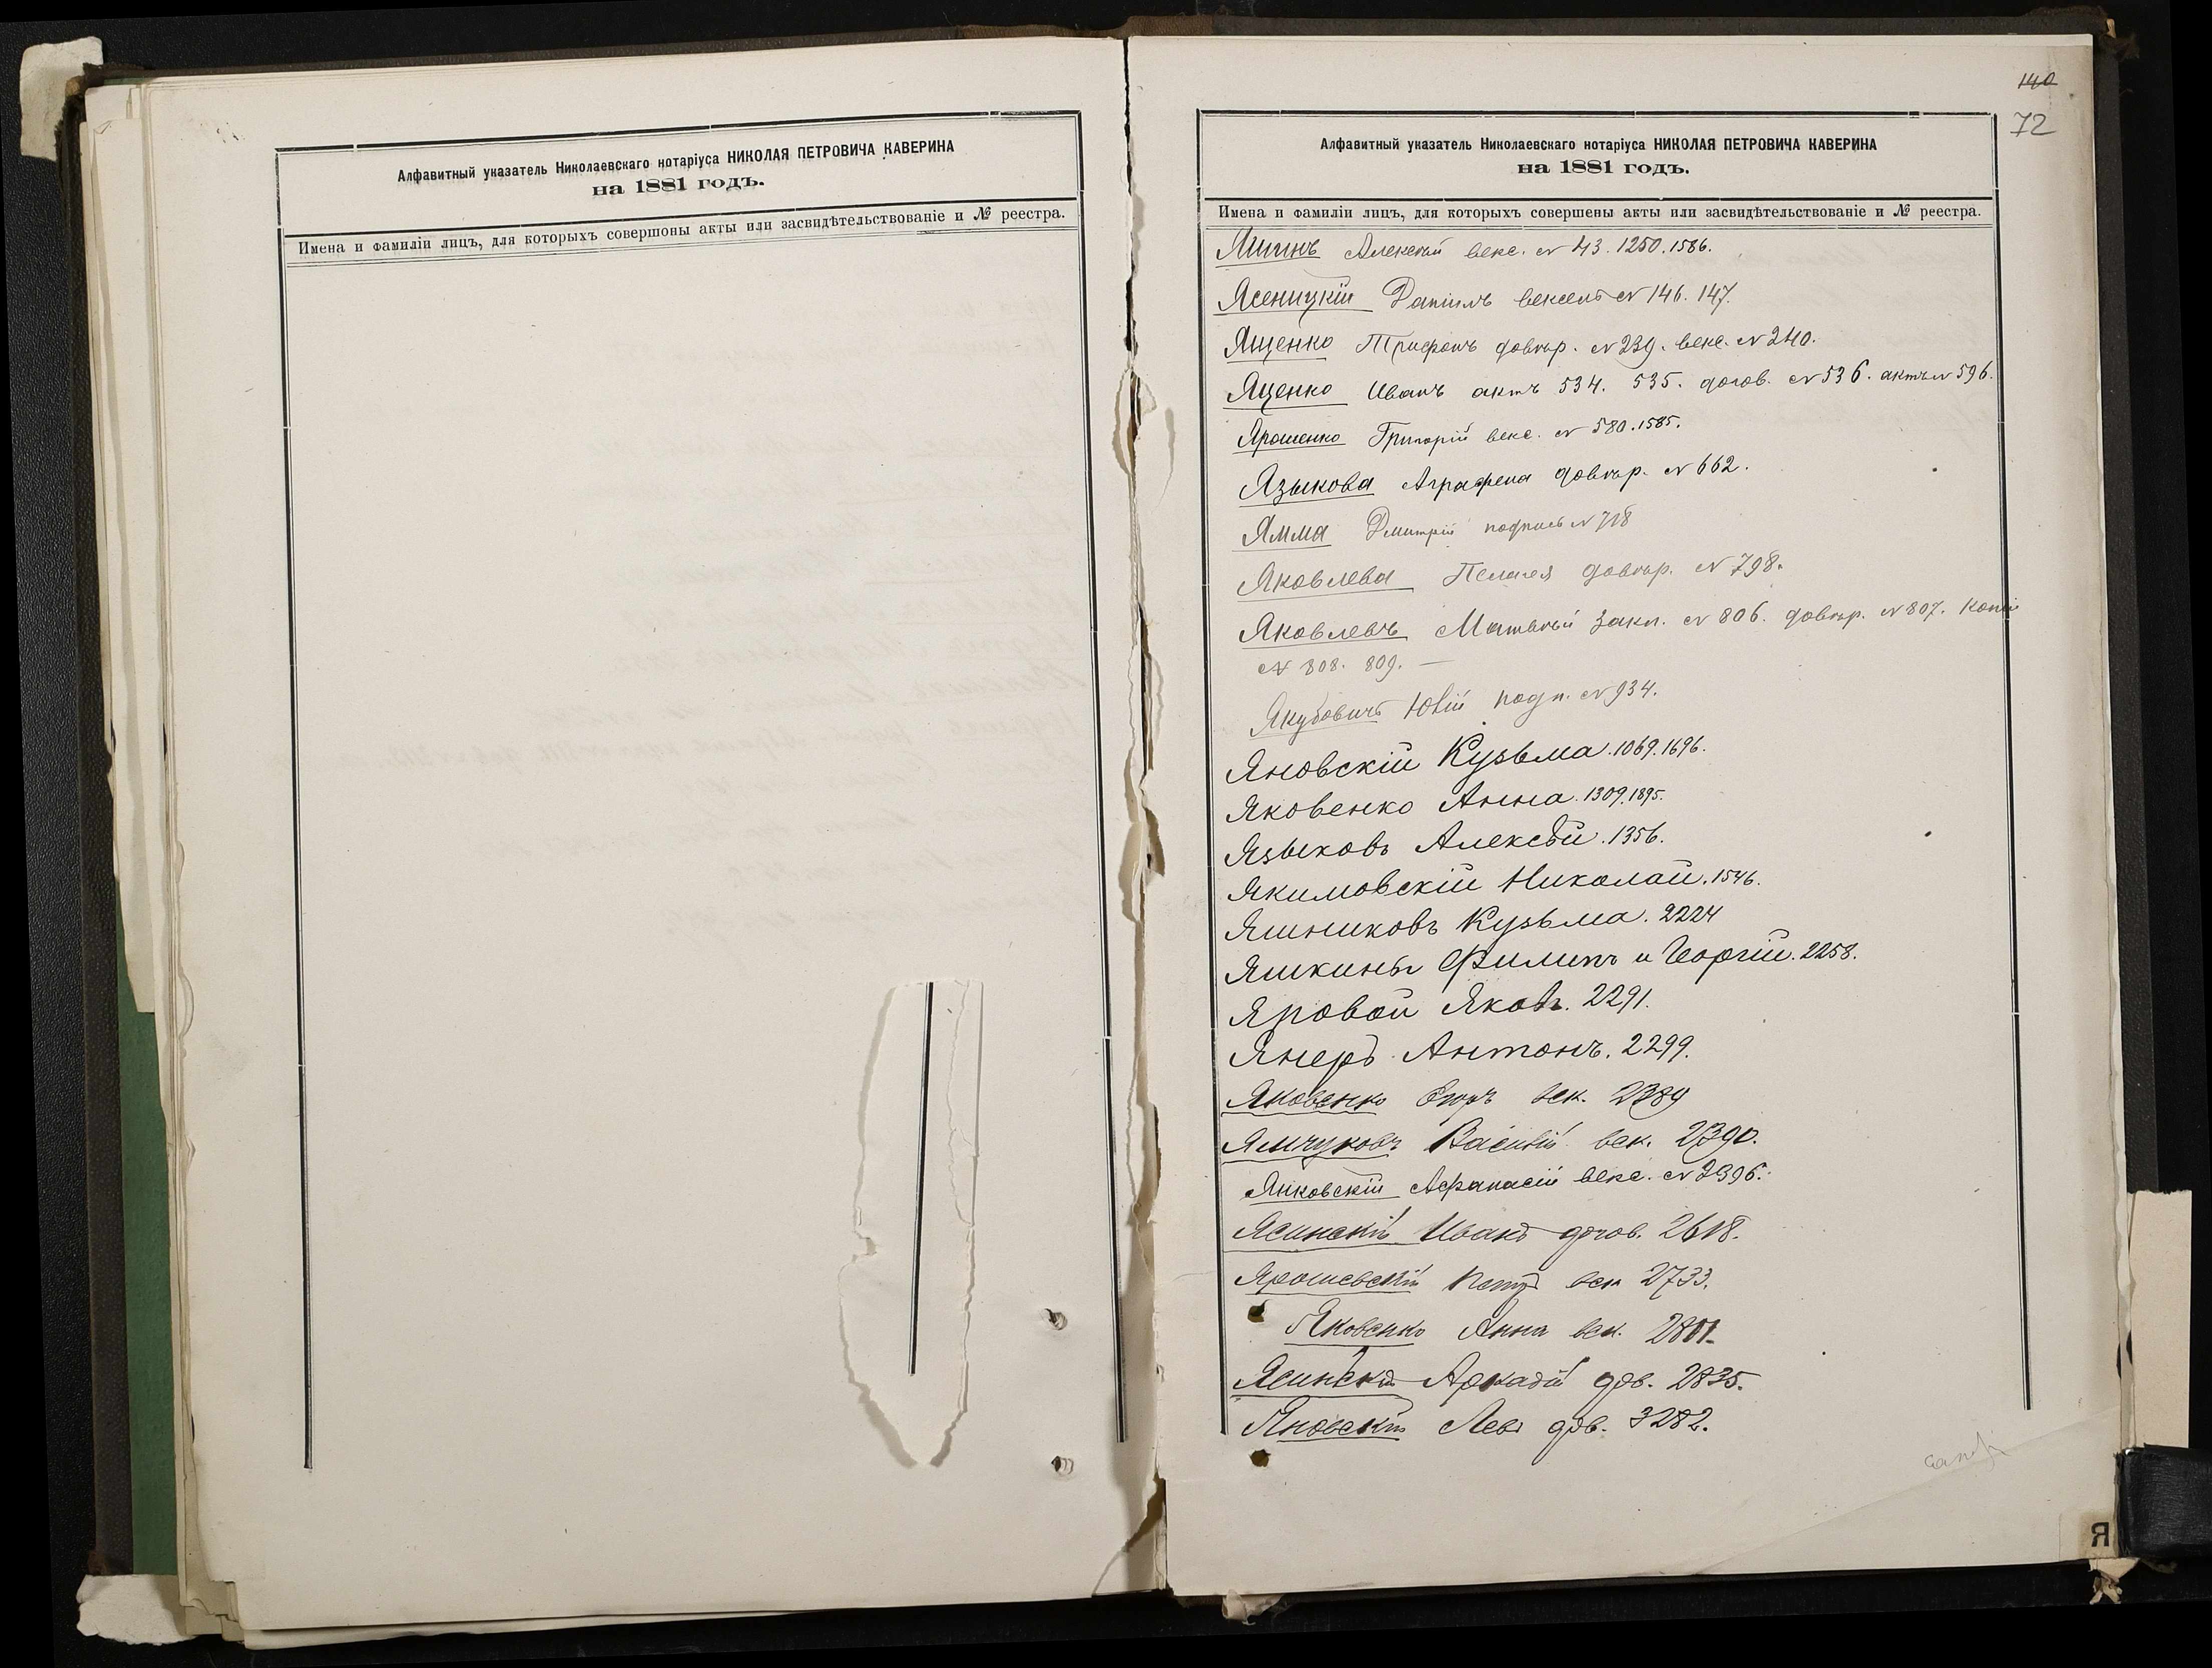 Алфавитный указатель Николаевскаго нотаріуса НИКОЛАЯ ПЕТРОВИЧА КАВЕРИНА
на 1881 годъ.
Имена и фамиліи лицъ, для которыхъ совершоны акты или засвидѣтельствованіе и № реестра.
140
72
Алфавитный указатель Николаевскаго нотаріуса НИКОЛАЯ ПЕТРОВИЧА КАВЕРИНА
на 1881 годъ.
Имена и фамиліи лицъ, для которыхъ совершены акты или засвидѣтельствованіе и № реестра.
Алексѣй векс. № 43. 1250. 1586.
Ясеницкій Даніилъ вексель № 146. 147.
Ященко Трифонъ довѣр. № 239. векс. № 240.
Яценко Иванъ актъ 534. 535. догов. № 536. актъ № 596.
Ярошенко Григорій векс. № 580. 1585.
Языкова Аграфена довѣр. № 662.
Ямма Дмитрій подпись № 718
Яковлева Пелагея довѣр. № 798.
Яковлевъ Матвѣй закл. № 806. довѣр. № 807. копіи
№ 808. 809. —
Якубовичъ Юлій подп. № 934.
Яновскій Кузьма. 1069. 1696.
Яковенко Анна. 1309. 1895.
Языковъ Алексѣй. 1356.
Якимовскій Николай. 1546.
Яшниковъ Кузьма. 2224
Яшкины Филипъ и Георгій. 2258.
Яровой Яковъ. 2291.
Янеръ Антонъ. 2299.
Яковенко Егоръ век. 2389
Ямчуковъ Василій век. 2390.
Янковскій Афанасій векс. № 2396.
Ясинскій Иванъ догов. 2618.
Ярошевскій Петръ век 2733.
Яковенко Анна век. 2801.
Ясинскій Аркадій дов. 2835.
Яновскій Левъ дов. 3282.
Я